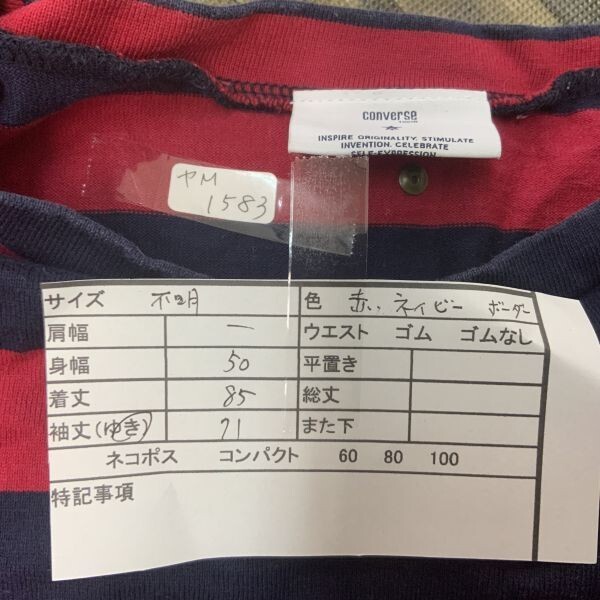 converse
INSPIRE ORIGINALITY. STIMULATE
INVENTION. CELEBRATE
SELF-EXPRESSION
ヤM
1583
サイズ 不明 色 赤、ネイビー ボーダー
肩幅 ー ウエスト ゴム ゴムなし
身幅 50 平置き
着丈 85 総丈
袖丈(ゆき) 71 また下
ネコポス コンパクト 60 80 100
特記事項